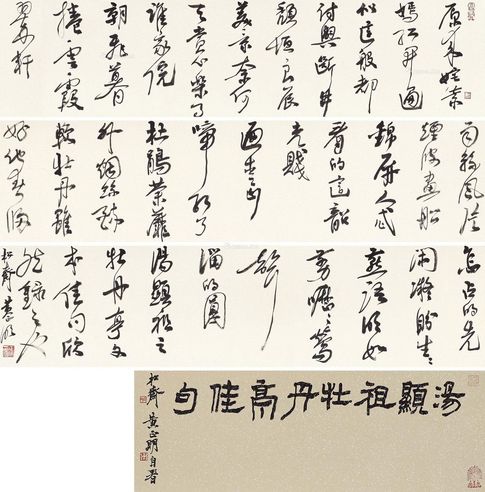 原來姹紫
嫣紅開遍
似這般都
付與斷井
頹垣良辰
美景奈何
天賞心樂事
誰家院
朝飛暮
捲雲霞
翠軒
雨絲風片
煙波畫船
錦屏人忒
看的這韶
光賤
遍青山
啼紅了
杜鵑荼蘼
外煙絲醉
軟牡丹雖
好他春歸
怎占的先
閑凝眄生生
燕語明如
剪嚦嚦鶯
歌
溜的圓
湯顯祖之
牡丹亭文
本佳句欣
然錄之
松齋
湯顯祖牡丹亭佳句
松齋黃正明自署